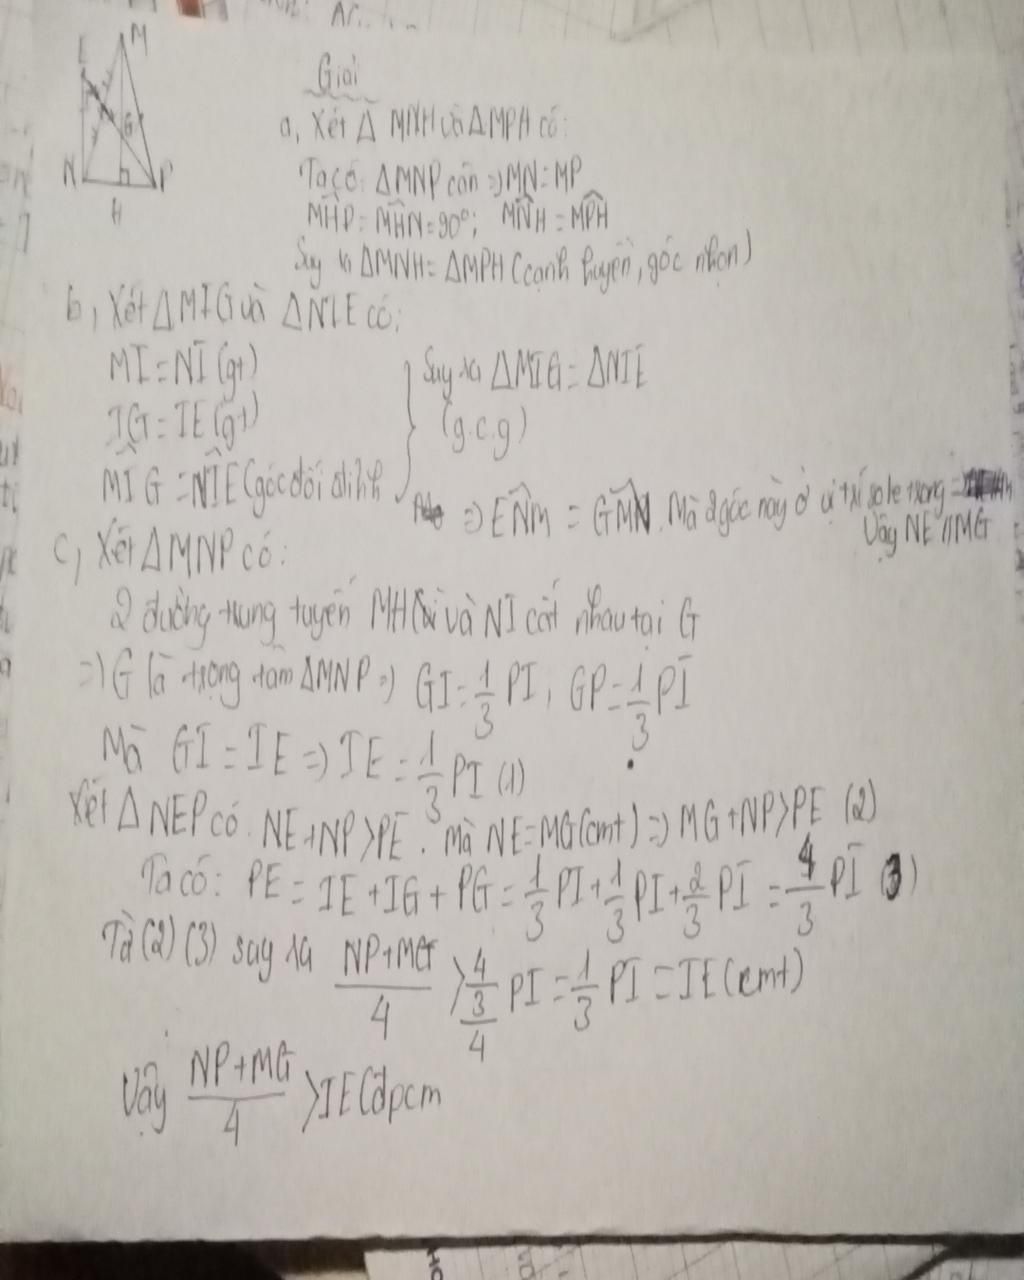 M
E
G
N
P
H
Giải
a, Xét Δ MNH và ΔMPH có:
Ta có: ΔMNP cân => MN = MP
MĤP = MĤN = 90°; MN̂H = MP̂H
Suy ra ΔMNH = ΔMPH (cạnh huyền, góc nhọn)
b, Xét ΔMIG và ΔNIE có:
MI = NI (gt)
IG = IE (gt)
MÎG = NÎE (góc đối đỉnh
} Suy ra ΔMIG = ΔNIE
(g.c.g)
=> EN̂M = GM̂N. Mà 2 góc này ở vị trí so le trong
Vậy NE // MG
c, Xét ΔMNP có:
2 đường trung tuyến MH và NI cắt nhau tại G
=> G là trọng tâm ΔMNP => GI = 1/3 PI, GP = 1/3 PI
Mà GI = IE => IE = 1/3 PI (1)
Xét ΔNEP có: NE + NP > PE. Mà NE = MG (cmt) => MG + NP > PE (2)
Ta có: PE = IE + IG + PG = 1/3 PI + 1/3 PI + 2/3 PI = 4/3 PI (3)
Từ (2) (3) suy ra (NP + MG)/4 > (4/3)/4 PI = 1/3 PI = IE (cmt)
Vậy (NP + MG)/4 > IE (đpcm